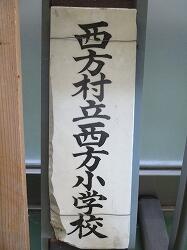 西方村立西方小学校